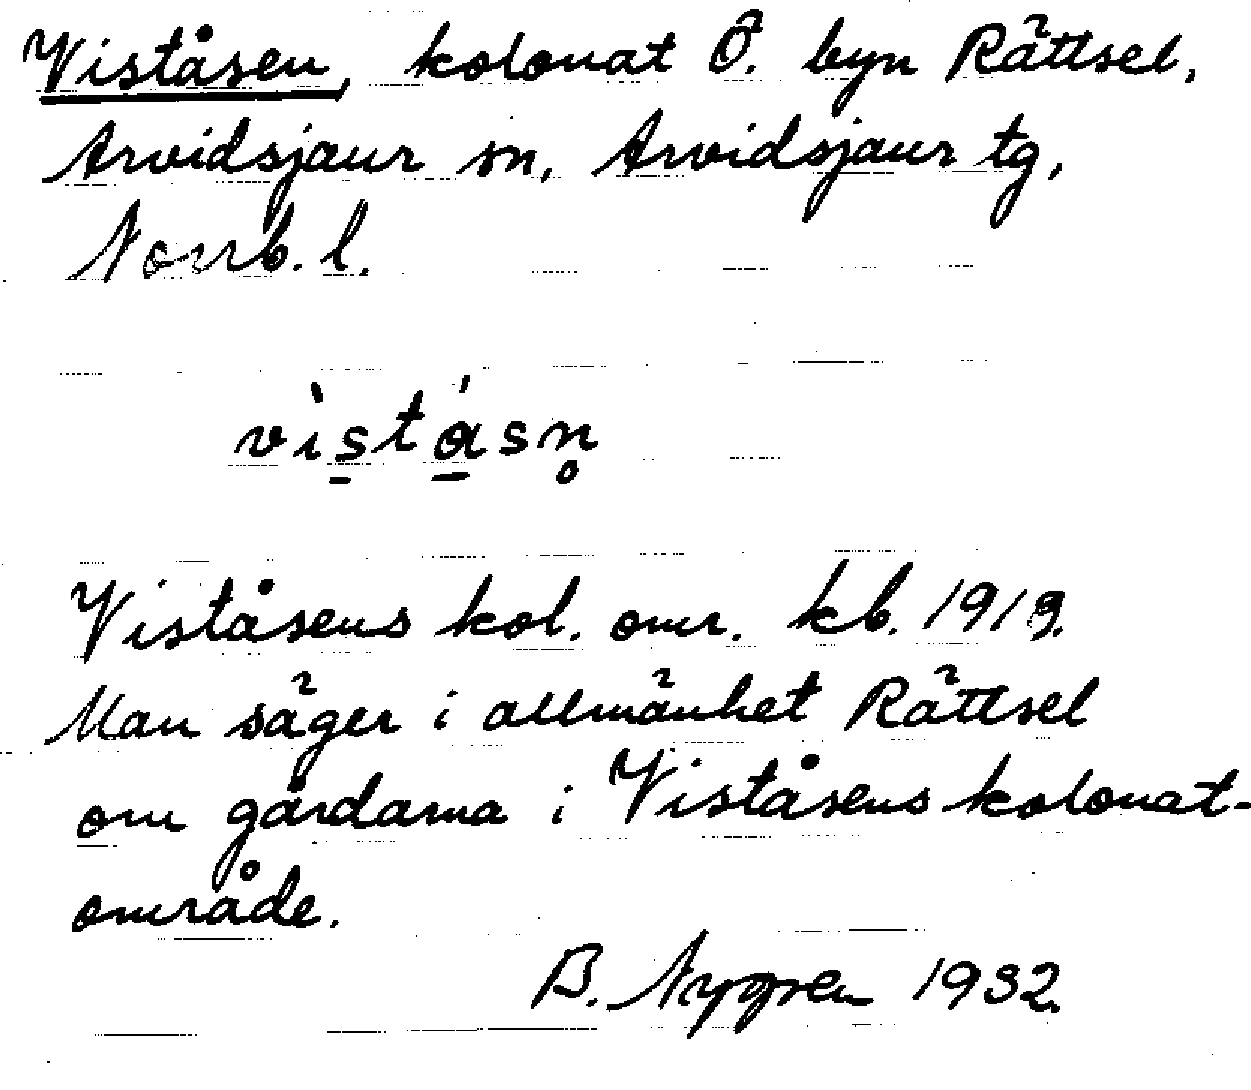 Viståsen, kolonat Ö. byn Rättsel,
Arvidsjaur sn, Arvidsjaur tg,
Norrb. l.
vìstásn̥
Viståsens kol. omr. kb. 1919.
Man säger i allmänhet Rättsel
om gårdarna i Viståsens kolonat-
område.
B. Nygren 1932.